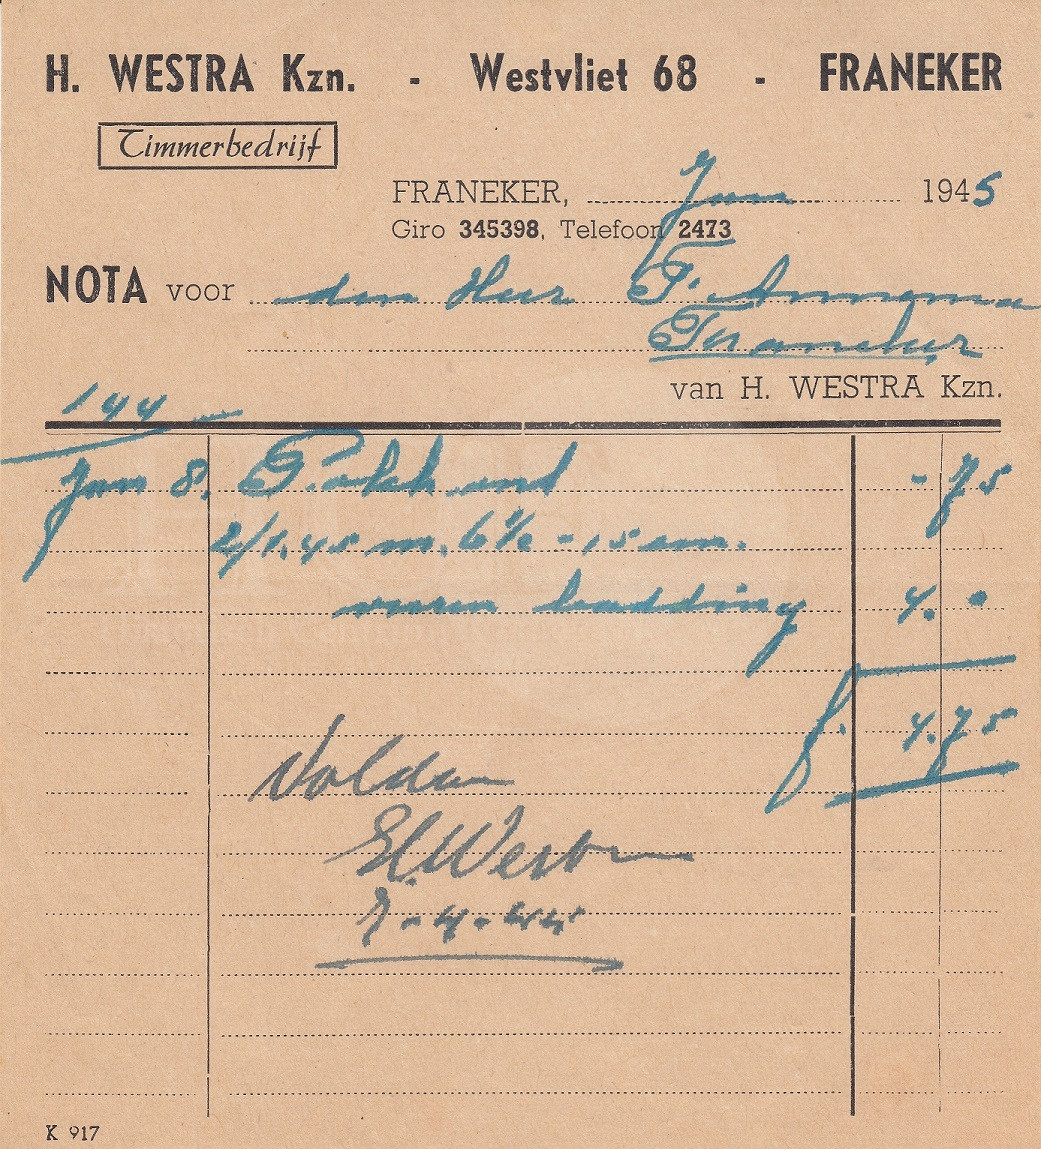 H. WESTRA Kzn. - Westvliet 68 - FRANEKER
Timmerbedrijf
FRANEKER, Jan 1945
Giro 345398, Telefoon 2473
NOTA voor den Heer F. Annema
Franeker
van H. WESTRA Kzn.
144
Jan 8. - 75
2/1.45 m. 6½ - 15 cm.
vuren badding 4.-
f. 4.75
Voldaan
H. Westra
7-4-45
K 917